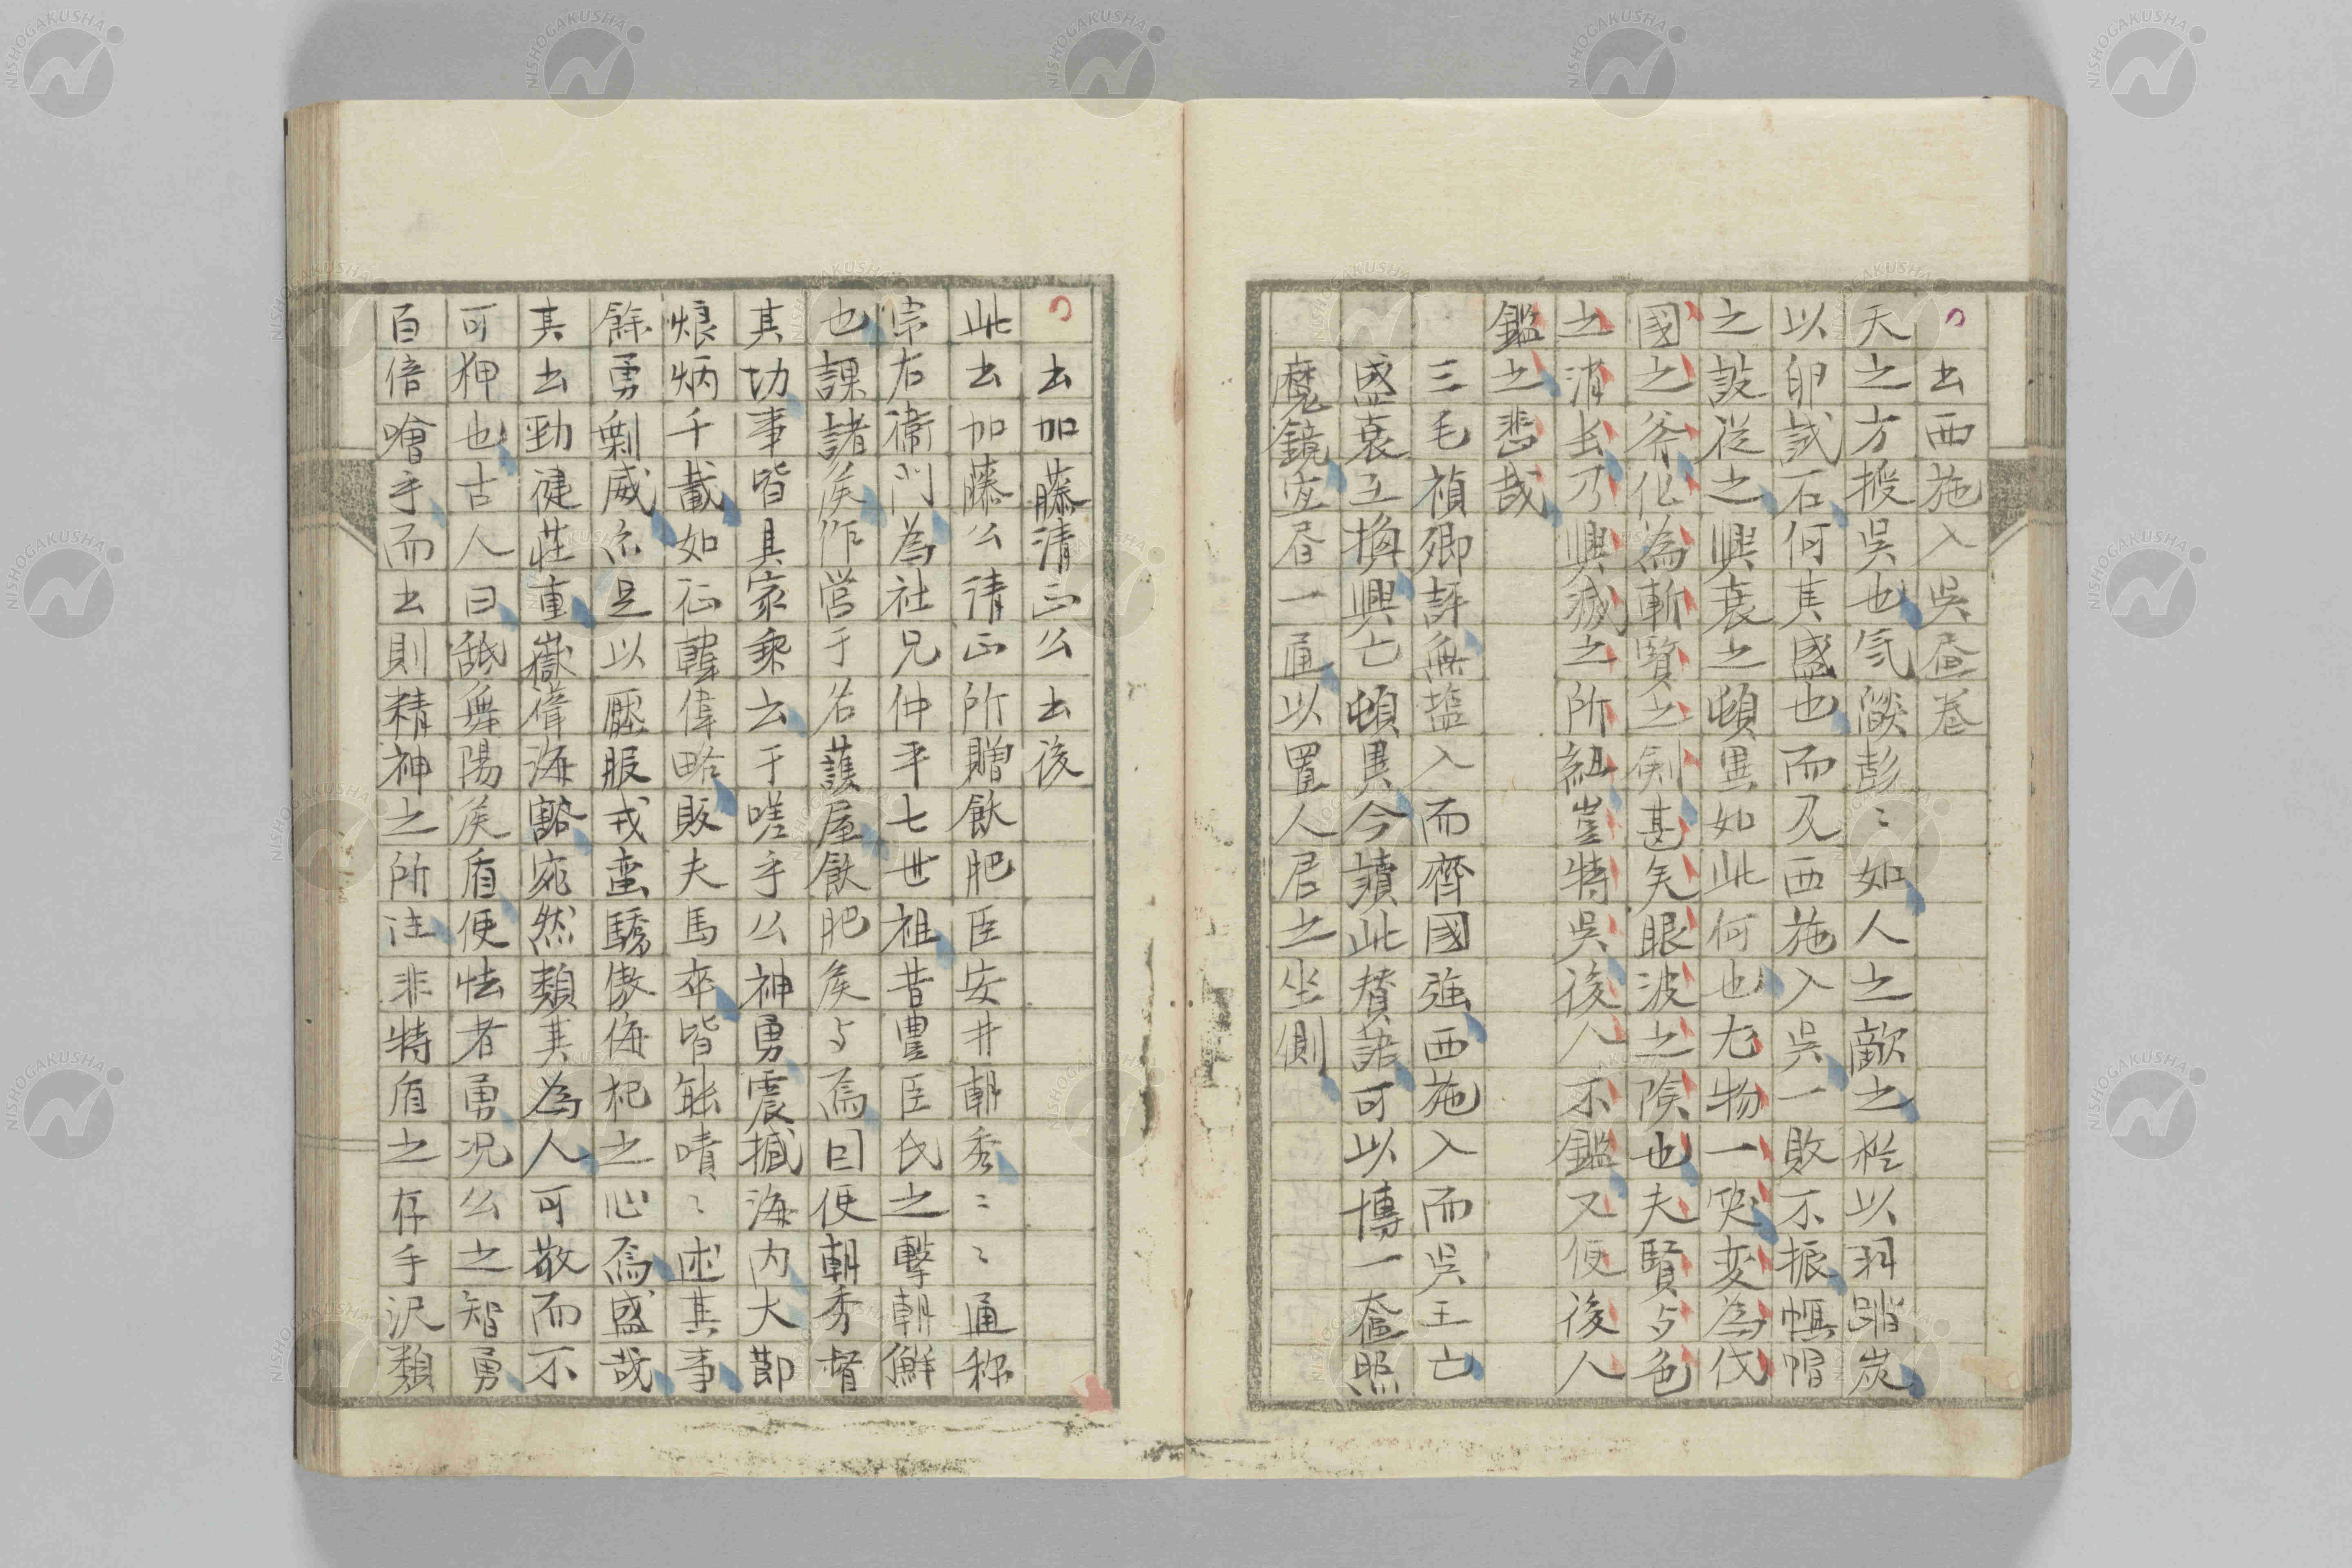 出西施入吳畫卷
天之方授吳也気燄彭〻如人之敵之於以羽蹈炭
以卵試石何其盛也而及西施入吳一敗不振幅帽
之設從之興衰之頓異如此何也尤物一笑変為伐
國之斧化為斬賢之劍甚矣眼波之險也夫賢与色
之消長乃興滅之所紐豈特吳後人不鑑又使後人
鑑之悲哉
三毛禎卿評無塩入而齊國強西施入而吳王亡
盛衰互換興亡頓異今讀此賛語可以博一奩照
魔鏡宜昼一通以置人君之坐側
書加藤清正公書後
此書加藤公清正所贈飫肥臣安井朝秀〻〻通称
宗右衛門為社兄仲平七世祖昔豊臣氏之擊朝鮮
也課諸矦作営于名護屋飫肥矦与焉因使朝秀督
其功事皆具家乘云于嗟乎公神勇震撼海内大節
烺炳千載如征韓偉略販夫馬卒皆能嘖〻述其事
餘勇剩威亦足以壓服戎蛮驕傲侮杞之心焉盛哉
其書勁健荘重嶽偉海豁宛然類其為人可敬而不
可狎也古人曰舐舞陽矦盾便怯者勇况公之智勇
百倍噲乎而書則精神之所注非特盾之存手沢類